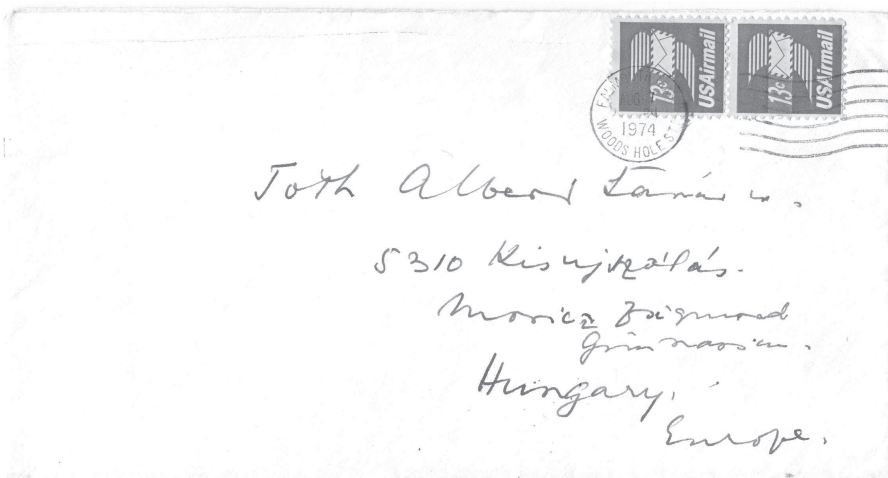 13c USAirmail
13c USAirmail
1974
WOODS HOLE ST
Toth Albert Tanár u.
5310 Kisujszálás.
Moricz Zsigmond
Gimnasium.
Hungary,
Europe.